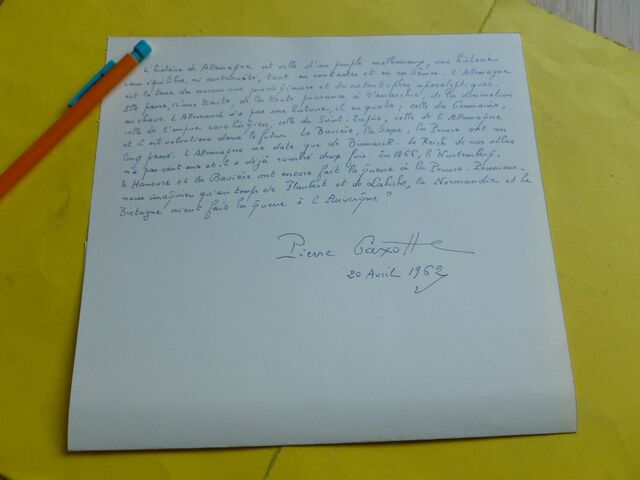 L'histoire d'Allemagne est celle d'un peuple malheureux, une histoire
sans équilibre, ni continuité, tout en contrastes et en extrêmes. L'Allemagne
est la terre des ascensions prodigieuses et des catastrophes apocalyptiques.
Elle passe, sans traité, de la toute puissance à l'anarchie, de la
au chaos. L'Allemand n'a pas une histoire, il en a quatre : celle des Germains,
celle de l'empire carolingien, celle du Saint-Empire, celle de l'Allemagne
et il est volontiers dans le futur. La Bavière, la Saxe, la Prusse ont un
long passé. L'Allemagne ne date que de Bismarck. Le Reich
n'a pas cent ans et il a déjà sombré deux fois. En 1866, le Wurtemberg,
le Hanovre et la Bavière ont encore fait la guerre à la Prusse. Pouvons-
nous imaginer qu'au temps de Flaubert et de Labiche, la Normandie et la
Bretagne aient fait la guerre à l'Auvergne ?
Pierre Gaxotte
20 Avril 1962